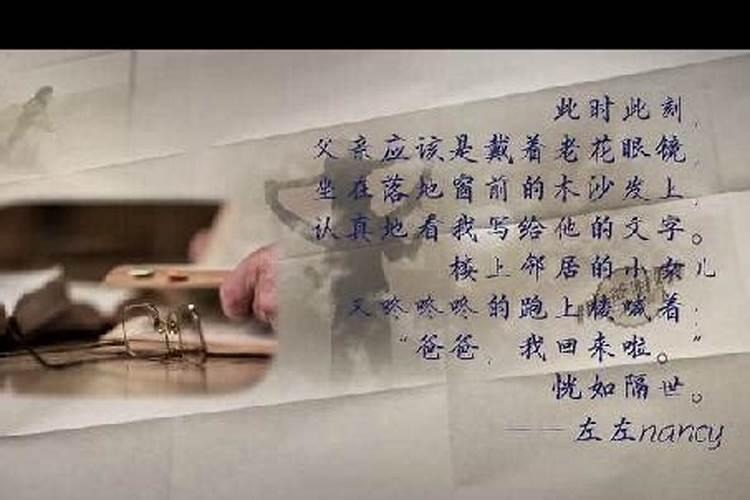 此时此刻,
父亲应该是戴着老花眼镜,
坐在落地窗前的木沙发上,
认真地看我写给他的文字。
楼上邻居的小女儿
又咚咚咚的跑上楼喊着:
“爸爸,我回来啦。”
恍如隔世。
——左左nancy